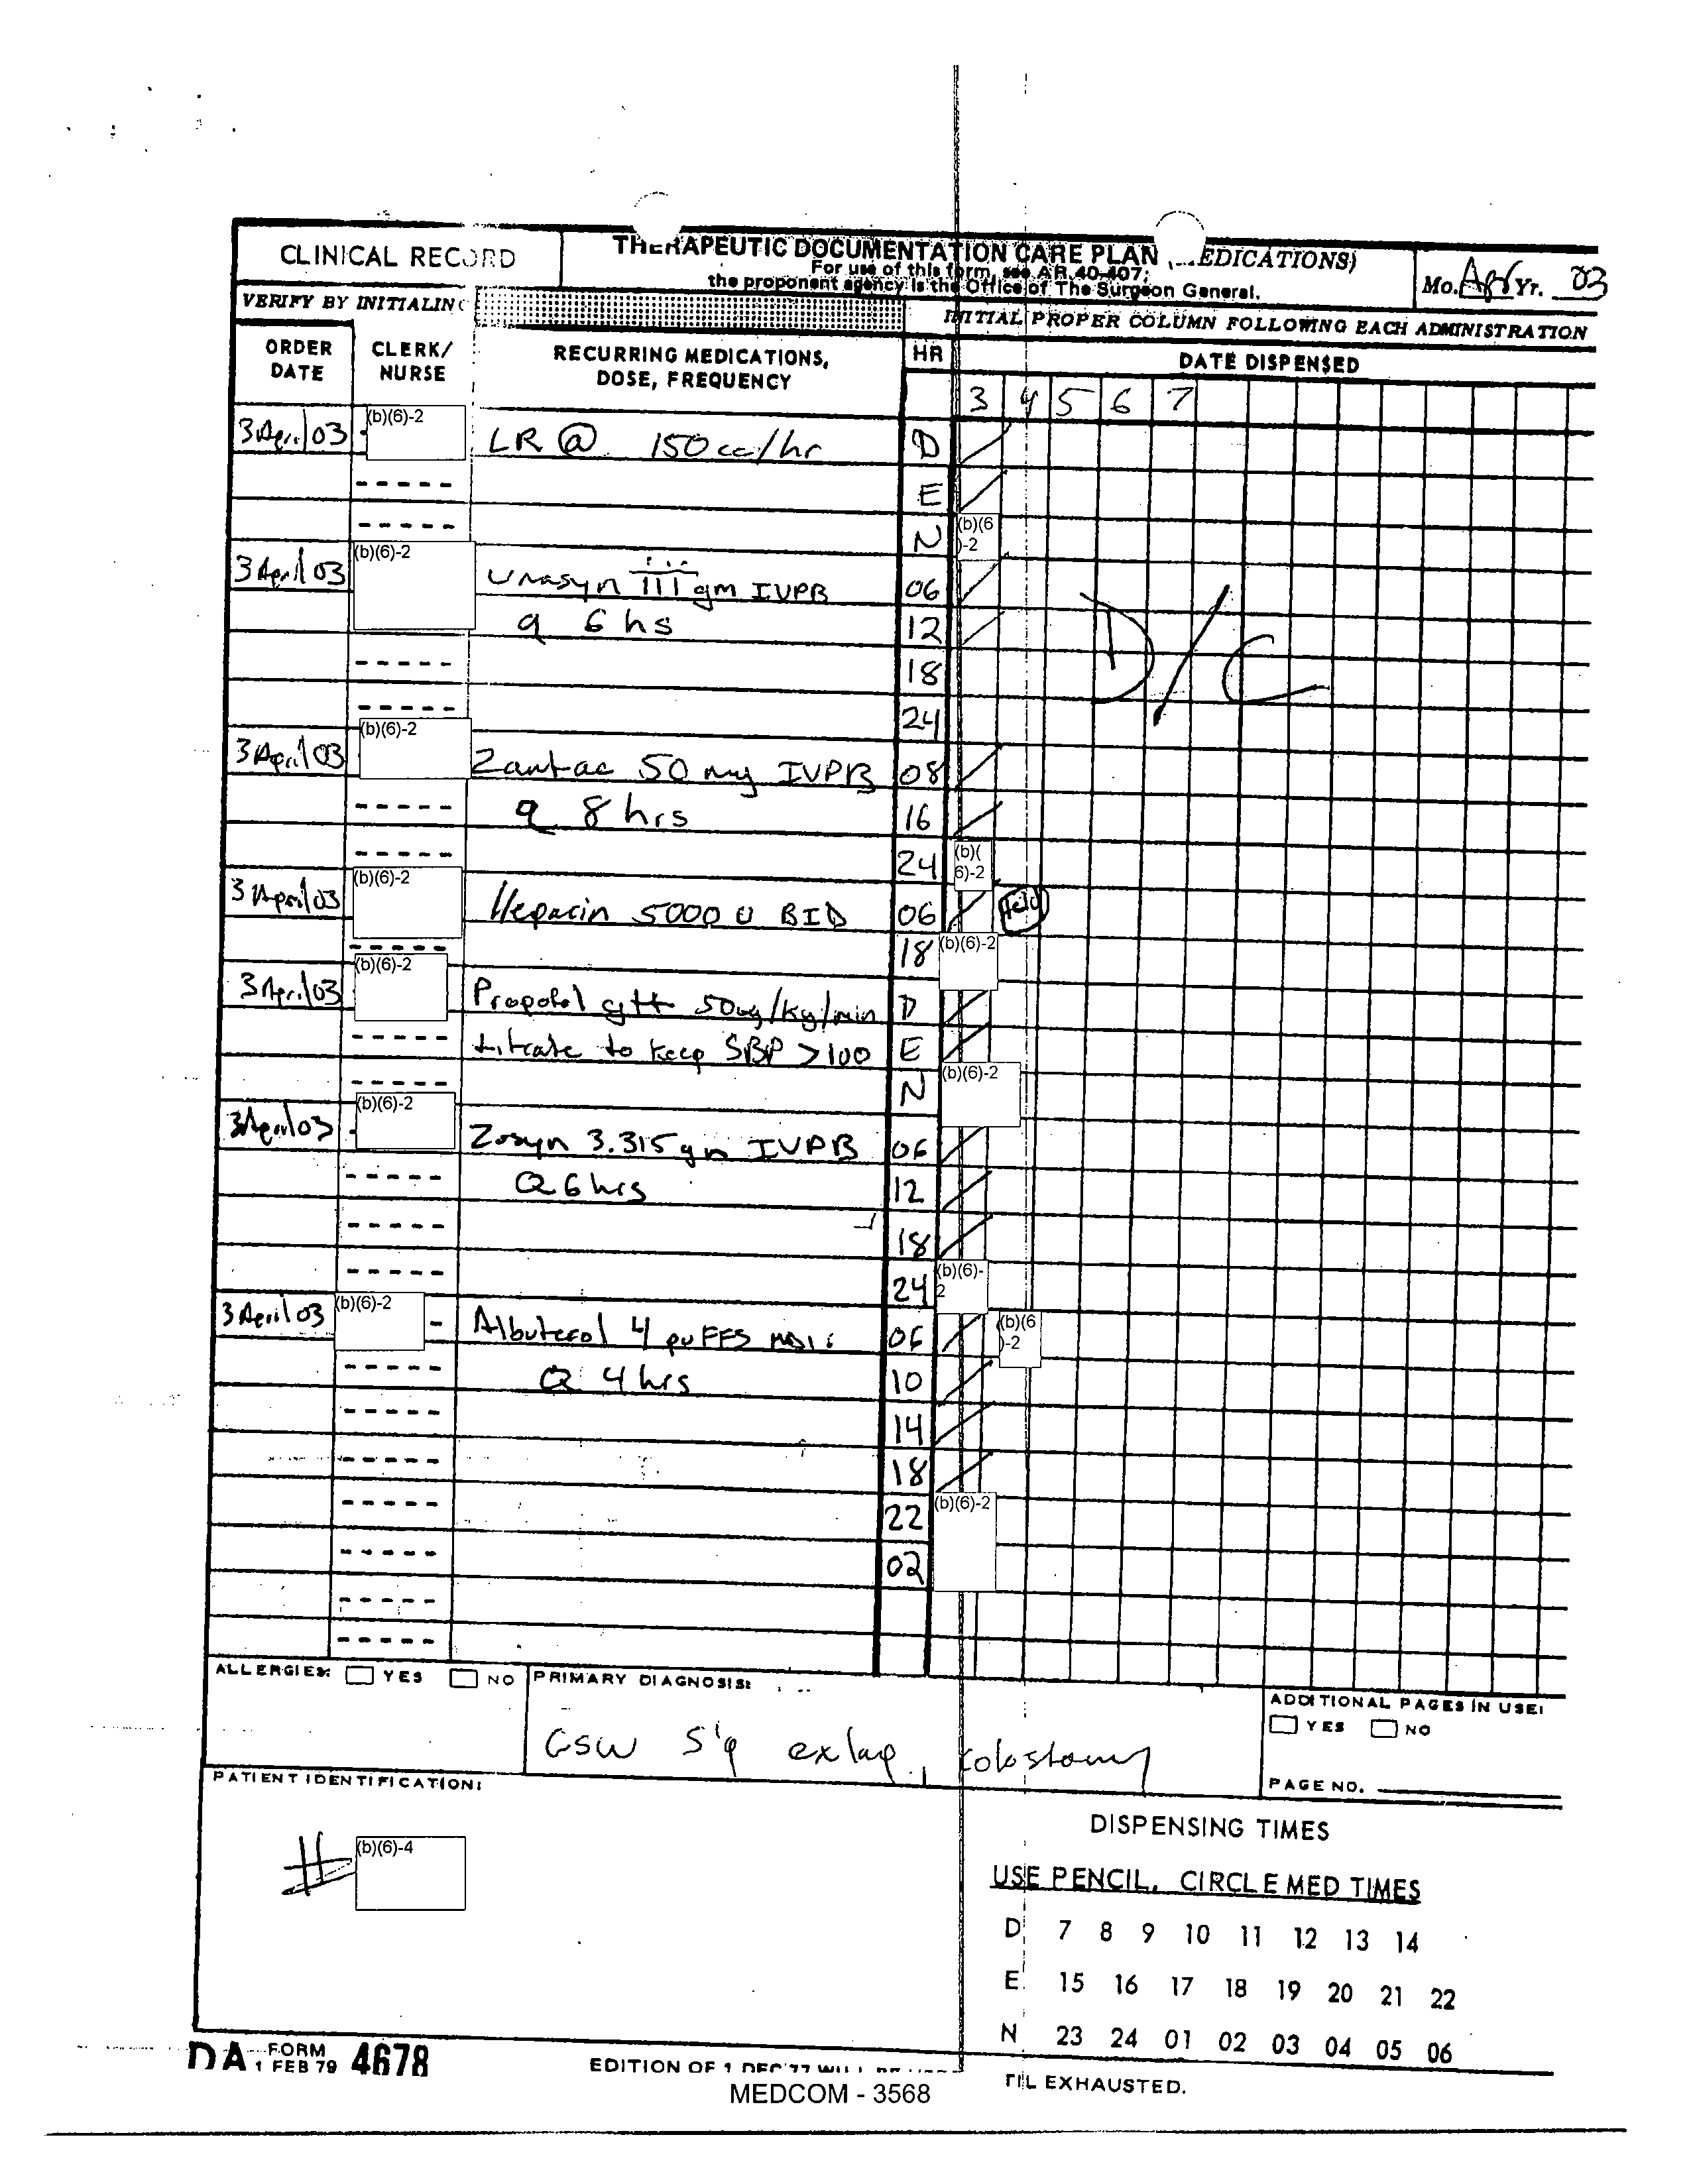 CLINICAL RECORD
THERAPEUTIC DOCUMENTATION CARE PLAN (MEDICATIONS)
For use of this form, see AR 40-407;
the proponent agency is the Office of The Surgeon General.
Mo. Apr Yr. 03
VERIFY BY INITIALING
INITIAL PROPER COLUMN FOLLOWING EACH ADMINISTRATION
ORDER DATE
CLERK/ NURSE
RECURRING MEDICATIONS, DOSE, FREQUENCY
HR
DATE DISPENSED
3 4 5 6 7
3 April 03 (b)(6)-2 LR @ 150 cc/hr D
E
N (b)(6)-2
3 April 03 (b)(6)-2 Unasyn iii gm IVPB 06
q 6 hs 12
18
24
D/C
3 April 03 (b)(6)-2 Zantac 50 mg IVPB 08
q 8 hrs 16
24 (b)(6)-2
3 April 03 (b)(6)-2 Heparin 5000 U BID 06 Held
18 (b)(6)-2
3 April 03 (b)(6)-2 Propofol gtt 50ug/kg/min D
titrate to keep SBP >100 E
N (b)(6)-2
3 April 03 (b)(6)-2 Zosyn 3.315 gm IVPB 06
Q 6 hrs 12
18
24 (b)(6)-2
3 April 03 (b)(6)-2 Albuterol 4 puFFS 06 (b)(6)-2
Q 4 hrs 10
14
18
22 (b)(6)-2
02
ALLERGIES: YES NO
PRIMARY DIAGNOSIS:
GSW s/p exlap, colostomy
ADDITIONAL PAGES IN USE:
YES NO
PAGE NO.
PATIENT IDENTIFICATION:
# (b)(6)-4
DISPENSING TIMES
USE PENCIL. CIRCLE MED TIMES
D 7 8 9 10 11 12 13 14
E 15 16 17 18 19 20 21 22
N 23 24 01 02 03 04 05 06
DA FORM 1 FEB 79 4678
EDITION OF 1 DEC 77 WILL BE
TIL EXHAUSTED.
MEDCOM - 3568